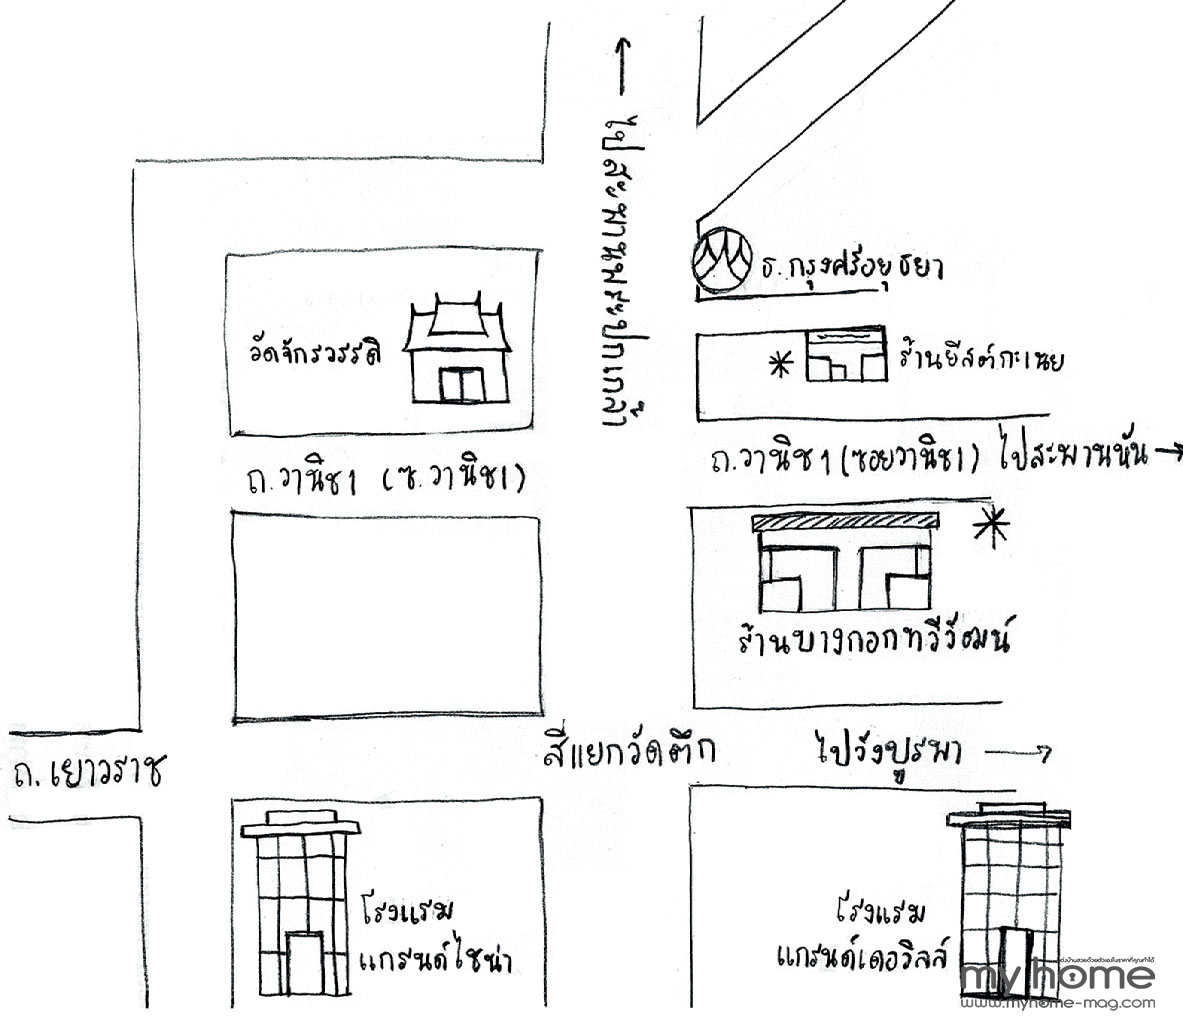 ไปสะพานพระปกเกล้า
ธ.กรุงศรีอยุธยา
วัดจักรวรรดิ
ร้านยีสต์กะเนย
ถ.วานิช1 (ซ.วานิช1)
ถ.วานิช1 (ซอยวานิช1) ไปสะพานหัน
ร้านบางกอกทวีวัฒน์
สี่แยกวัดตึก
ไปวังบูรพา
ถ.เยาวราช
โรงแรม
แกรนด์ไชน่า
โรงแรม
แกรนด์เดอวิลล์
my home
www.myhome-mag.com